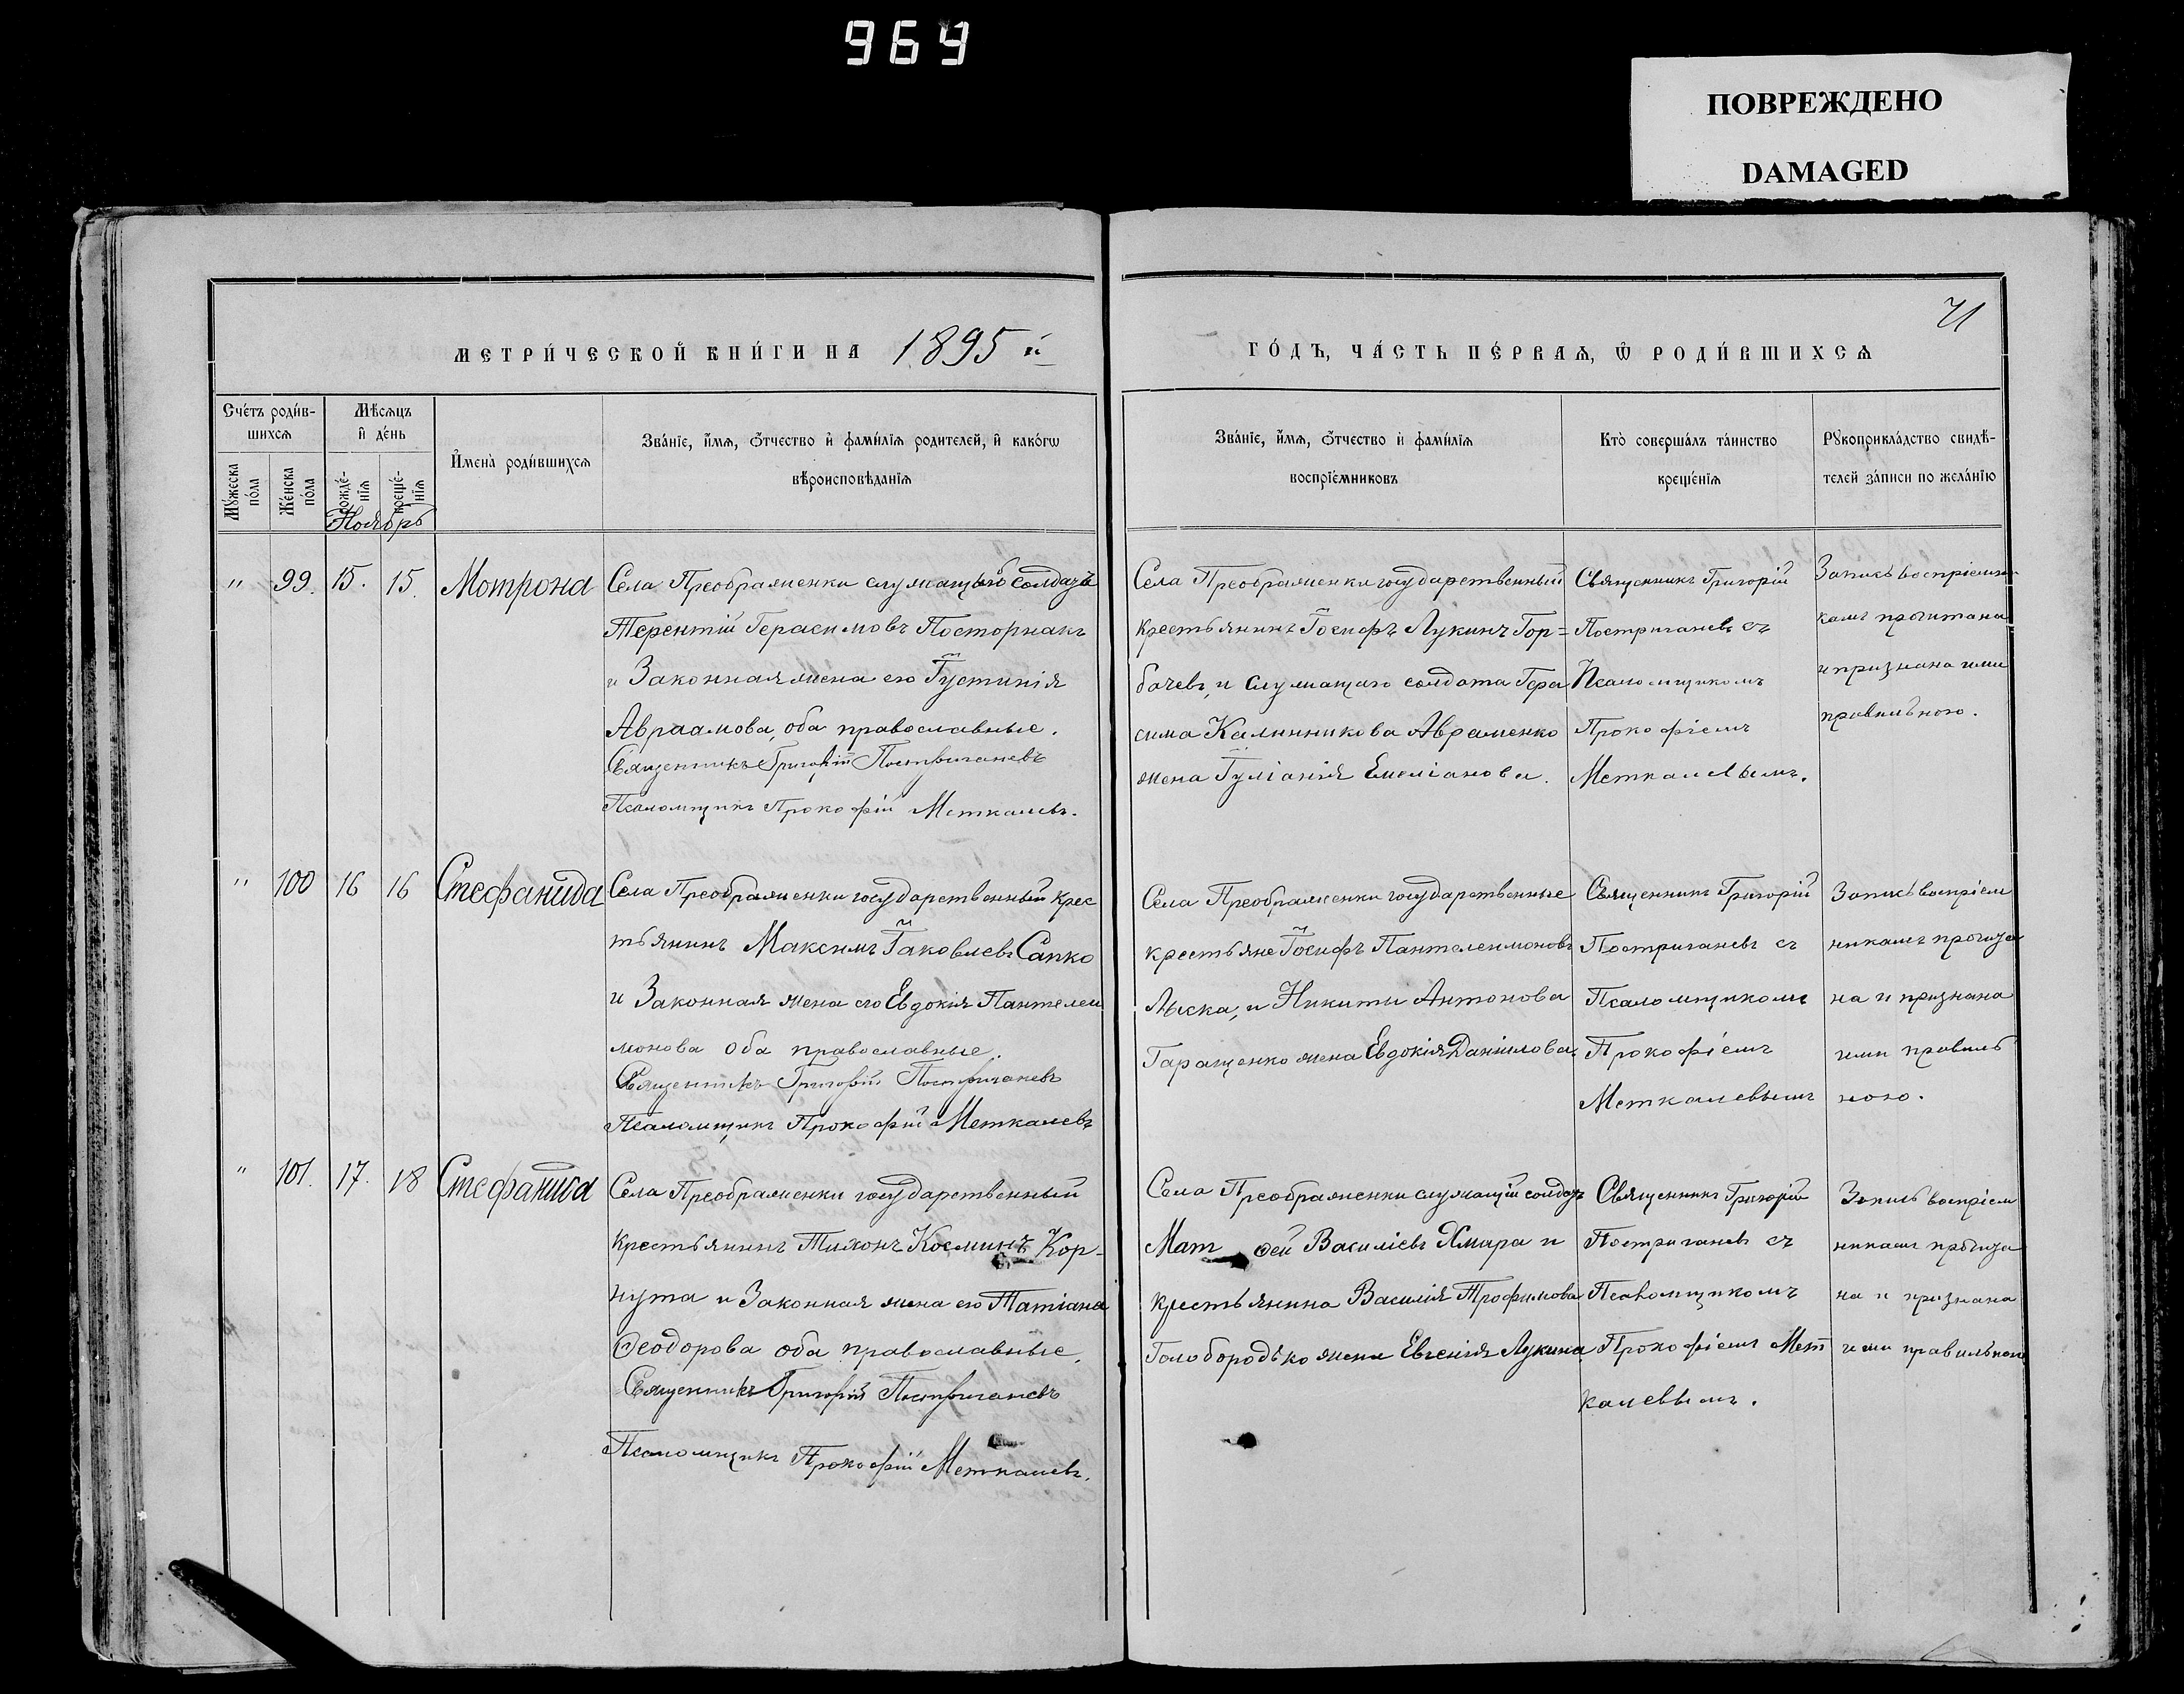 969
ПОВРЕЖДЕНО
DAMAGED
МЕТРИ́ЧЕСКОЙ КНИ́ГИ НА 1895 й
ГО́ДЪ, ЧА́СТЬ ПЕ́РВАѦ, Ѡ҆ РОДИ́ВШИХСѦ
71
Сче́тъ роди́в-
шихсѧ
Мꙋ́жеска
по́ла
Же́нска
по́ла
Мѣ́сѧцъ
и҆ де́нь
рожде́-
нїѧ
креще́-
нїѧ
Ноябрь
И҆мена̀ роди́вшихсѧ
Зва́нїе, и҆́мѧ, ѻ҆́тчество и҆ фами́лїѧ родителей, и҆ како́гѡ
вѣроисповѣ́данїѧ
Зва́нїе, и҆́мѧ, ѻ҆́тчество и҆ фами́лїѧ
воспрїе́мниковъ
Кто̀ соверша́лъ та́инство
креще́нїѧ
Рꙋкоприкла́дство свидѣ́-
телей за́писи по жела́нїю
" 99. 15. 15. Мотрона
Села Преображенки служащый солдатъ
Терентій Герасимовъ Посторнакъ
и Законная жена его Іустинія
Авраамова, оба православные.
Священникъ Григорій Постриганевъ
Псаломщикъ Прокофій Меткалевъ.
Села Преображенки государственный
крестьянинъ Іосифъ Лукинъ Гор=
бачевъ, и служащаго солдата Гера
сима Калинникова Авраменко
жена Іуліанія Емеліанова.
Священникъ Григорій
Постриганевъ съ
Псаломщикомъ
Прокофіемъ
Меткалевымъ.
Запись воспріемни-
камъ прочитана
и признана ими
правильною.
" 100 16 16 Стефанида
Села Преображенки государственный крес
тьянинъ Максимъ Іаковлевъ Сапко
и Законная жена его Евдокія Пантелеи
монова оба православные.
Священникъ Григорій Постриганевъ
Псаломщикъ Прокофій Меткалевъ
Села Преображенки государственные
крестьяне Іосифъ Пантелеимоновъ
Лыска, и Никити Антонова
Гаращенко жена Евдокія Даніилова.
Священникъ Григорій
Постриганевъ съ
Псаломщикомъ
Прокофіемъ
Меткалевымъ
Запись воспріем
никамъ прочита
на и признана
ими правиль
ною.
" 101. 17. 18 Стефанида
Села Преображенки государственный
крестьянинъ Тихонъ Косминъ Кор-
нута и Законная жена его Татіана
Ѳеодорова оба православные.
Священникъ Григорій Постриганевъ
Псаломщикъ Прокофій Меткалевъ.
Села Преображенки служащій солдатъ
Мат ѳей Василіевъ Хмара и
крестьянина Василія Трофимова
Голобородько жена Евгенія Лукина.
Священникъ Григорій
Постриганевъ съ
Псаломщикомъ
Прокофіемъ Мет
калевымъ.
Запись воспріем
никамъ прочита
на и признана
ими правильною